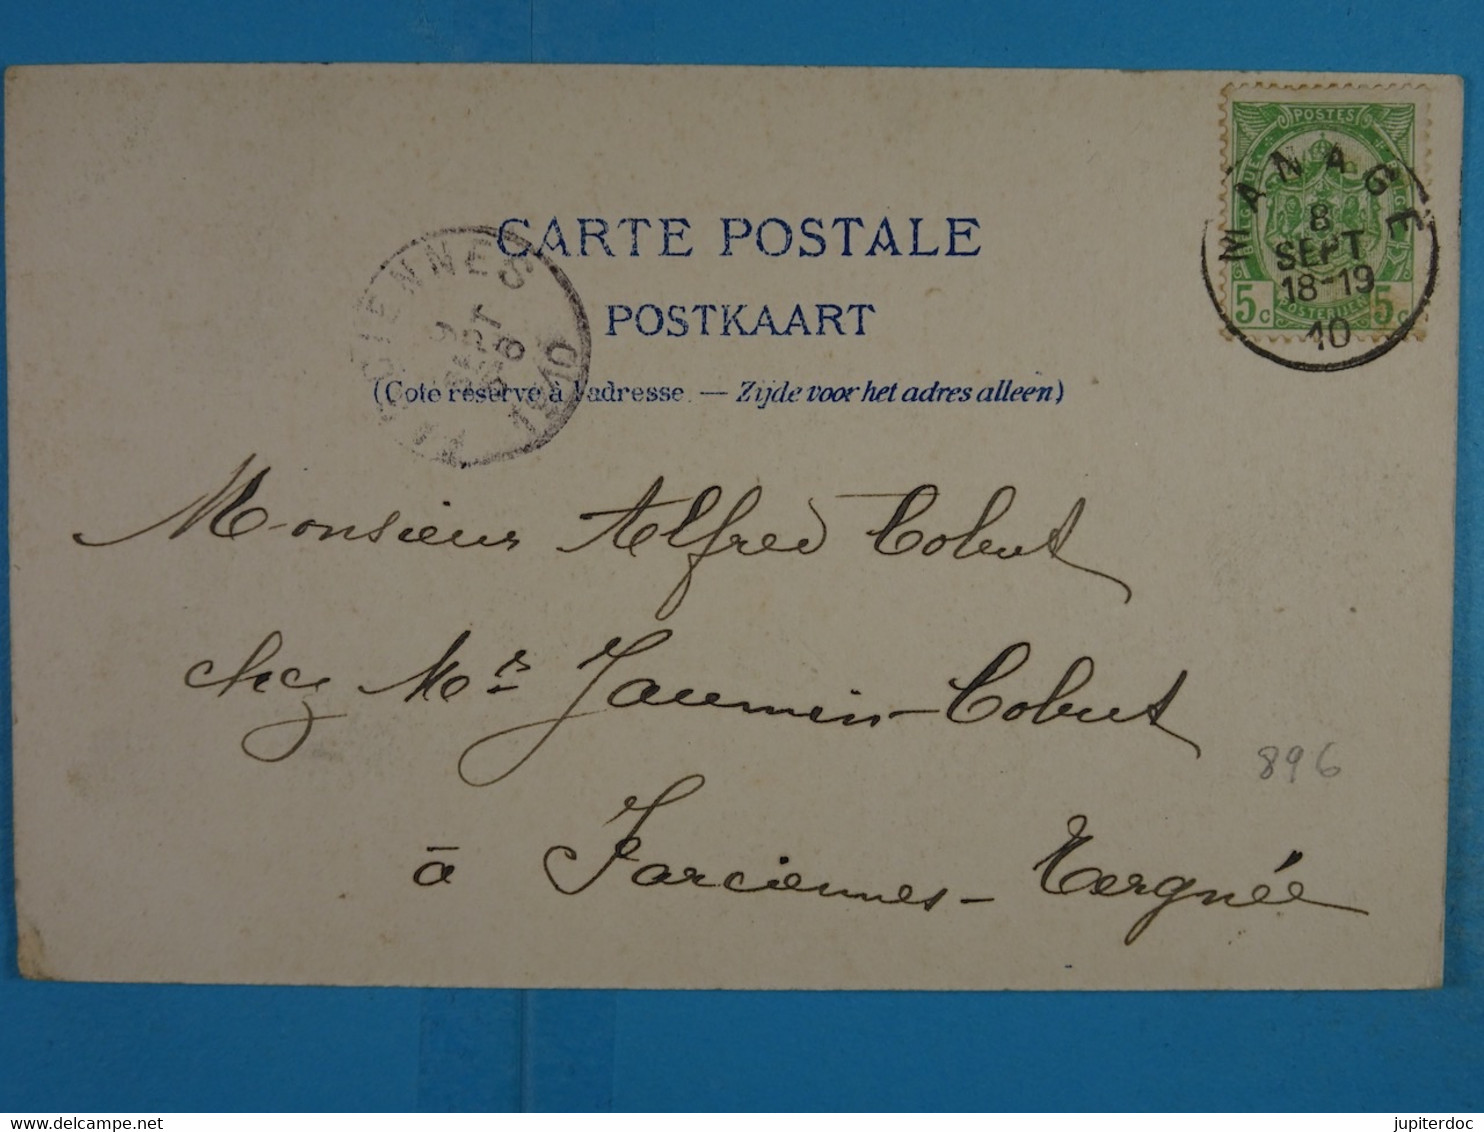 CARTE POSTALE
POSTKAART
(Côté réservé à l'adresse. — Zijde voor het adres alleen)
POSTES
5c 5c
POSTERIJEN
MANAGE
8
SEPT
18-19
10
CIENNES
9
SEPT
1910
Monsieur Alfred Cobut
chez Mr Jaumin-Cobut
896
à Farciennes-Tergnée
jupiterdoc